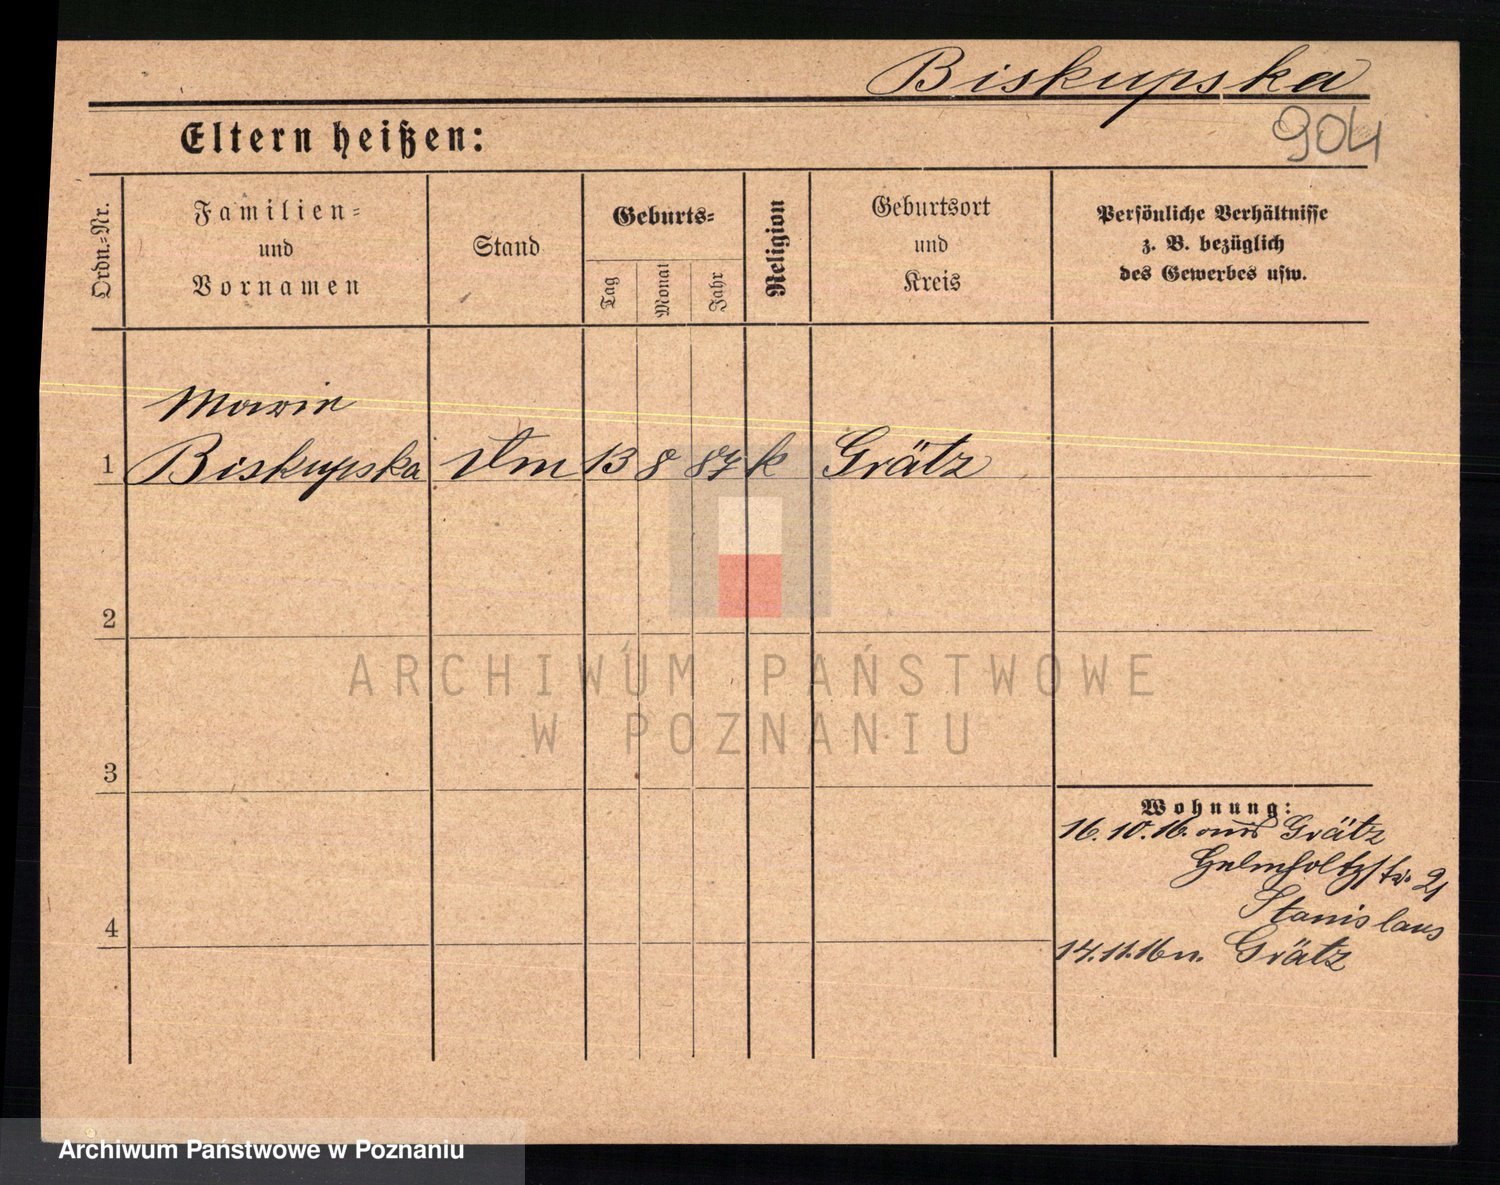 Biskupska
904
Eltern heißen:
Ordn.-Nr.
Familien-
und
Vornamen
Stand
Geburts-
Tag
Monat
Jahr
Religion
Geburtsort
und
Kreis
Persönliche Verhältnisse
z. B. bezüglich
des Gewerbes usw.
Marie
1 Biskupska 13 8 87 k Grätz
2
3
4
Wohnung:
16.10.16. aus Grätz
Helmholtzstr. 21
Stanislaus
14.11.16 n. Grätz
ARCHIWUM PAŃSTWOWE
W POZNANIU
Archiwum Państwowe w Poznaniu